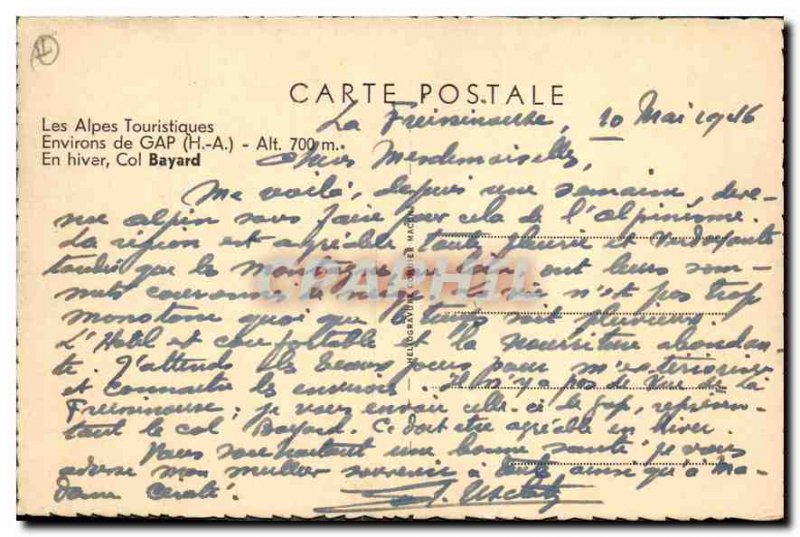 CARTE POSTALE
Les Alpes Touristiques
Environs de GAP (H.-A.) - Alt. 700 m.
En hiver, Col Bayard
La Freissinouse, 10 Mai 1946
Mesdemoiselles,
Me voilà, depuis une semaine, deve-
nue alpin sans faire pour cela de l'alpinisme.
La région est agréable toute fleurie et verdoyante
tandis que les montagnes au loin ont leurs som-
mets couronnés de neige. La vie n'est pas trop
monotone quoi que le temps soit pluvieux
L'Hotel est confortable et la nourriture abondan-
te. J'attends les beaux jours pour m'extérioriser
et connaître les environs. il n'y a pas de vue de la
Freissinouse; je vous envoie celle-ci de Gap, représen-
tant le col Bayard. Ce doit être agréable en hiver.
Vous souhaitant une bonne santé je vous
adresse mon meilleur souvenir à ainsi qu'à Ma-
dame
HELIOGRAVURE MACON
CPAPHIL